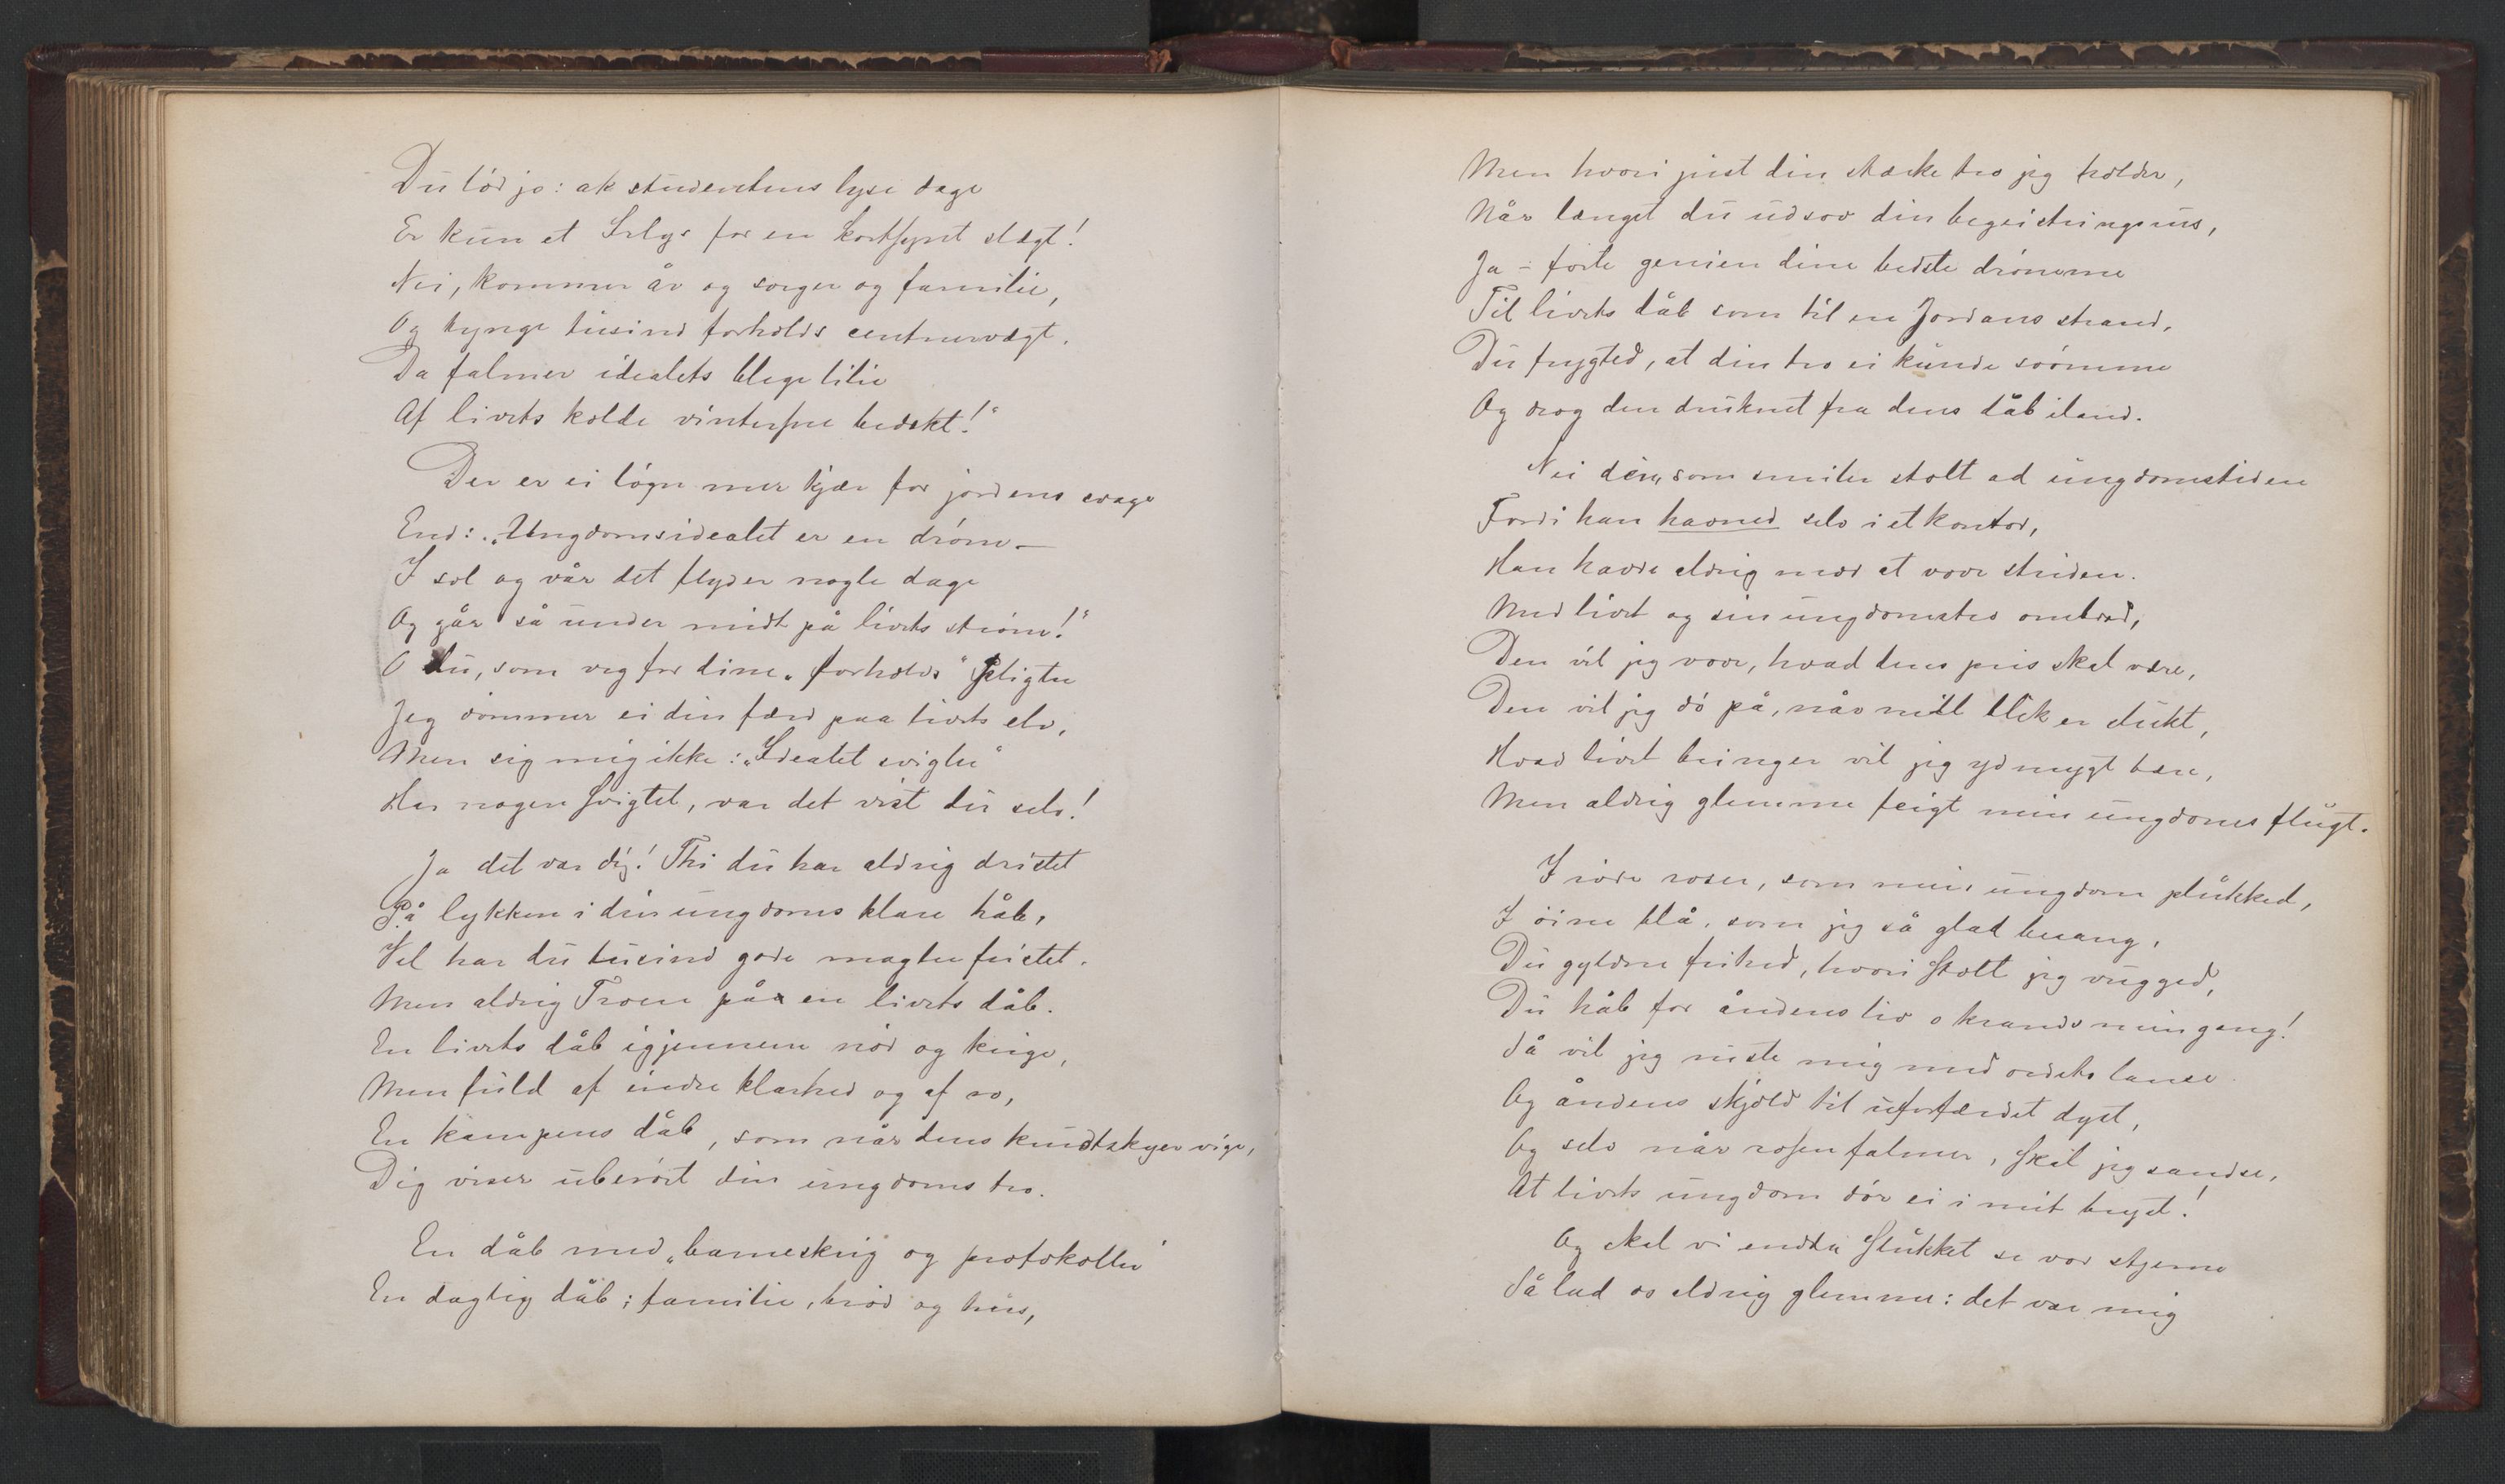 Du lod jo: ak studentens lyse dage
Er kun et for en kortsynt slægt!
Nei, kommer år og sorger og familie,
Og tynge tusind forholds centnervægt.
Da falmer idealets blege lilie
Af livets kolde vintersne bedækt!"
Der er ei løgn mer kjær for jordens svage
End: "Ungdomsidealet er en drøm –
I sol og vår det flyder nogle dage
Og går så under midt på livets strøm!"
O du, som veg for dine "forholds" pligter
Jeg dømmer ei din færd paa livets elv,
Men sig mig ikke: "Idealet svigter"
Har nogen svigtet, var det vist du selv!
Ja det var dig! Thi du har aldrig dristet
På lykken i din ungdoms klare håb,
Vel har du tusind gode magter fristet.
Men aldrig Troen på en livets dåb.
En livets dåb igjennem nød og krige,
Men fuld af indre klarhed og af ro,
En kampens dåb, som når dens krudtskyer vige,
Dig viser uberørt din ungdoms tro.
En dåb med "barneskrig og protokoller"
En daglig dåb i familie, brød og hus,
Men hvori just din stærke tro jeg holder,
Når længst du udsov din begeistringsrus,
Ja – førte genien dine bedste drømme
Til livets dåb som til en Jordans strand,
Du frygted, at din tro ei kunde svømme
Og drog den druknet fra dens dåb iland.
Nei den, som smiler stolt ad ungdomstiden
Fordi han havned selv i et kontor,
Han havde aldrig mod at vove striden.
Med livet og sin ungdomstro ombord,
Den vil jeg vove, hvad dens pris skal være,
Den vil jeg dø på, når mit blik er slukt,
Hvad livet bringer vil jeg ydmygt bære,
Men aldrig glemme feigt min ungdoms flugt.
I røde roser, som min ungdom plukked,
I øine blå, som jeg så glad besang,
Du gyldne frihed, hvori stolt jeg vugged,
Du håb for åndens liv o krands min gang!
Så vil jeg ruste mig med ordets lanse
Og åndens skjold til uforfærdet dyst,
Og selv når rosen falmer, skal jeg sandse,
At livets ungdom dør ei i mit bryst!
Og skal vi endda slukket se vor stjerne
Så lad os aldrig glemme: det var mig